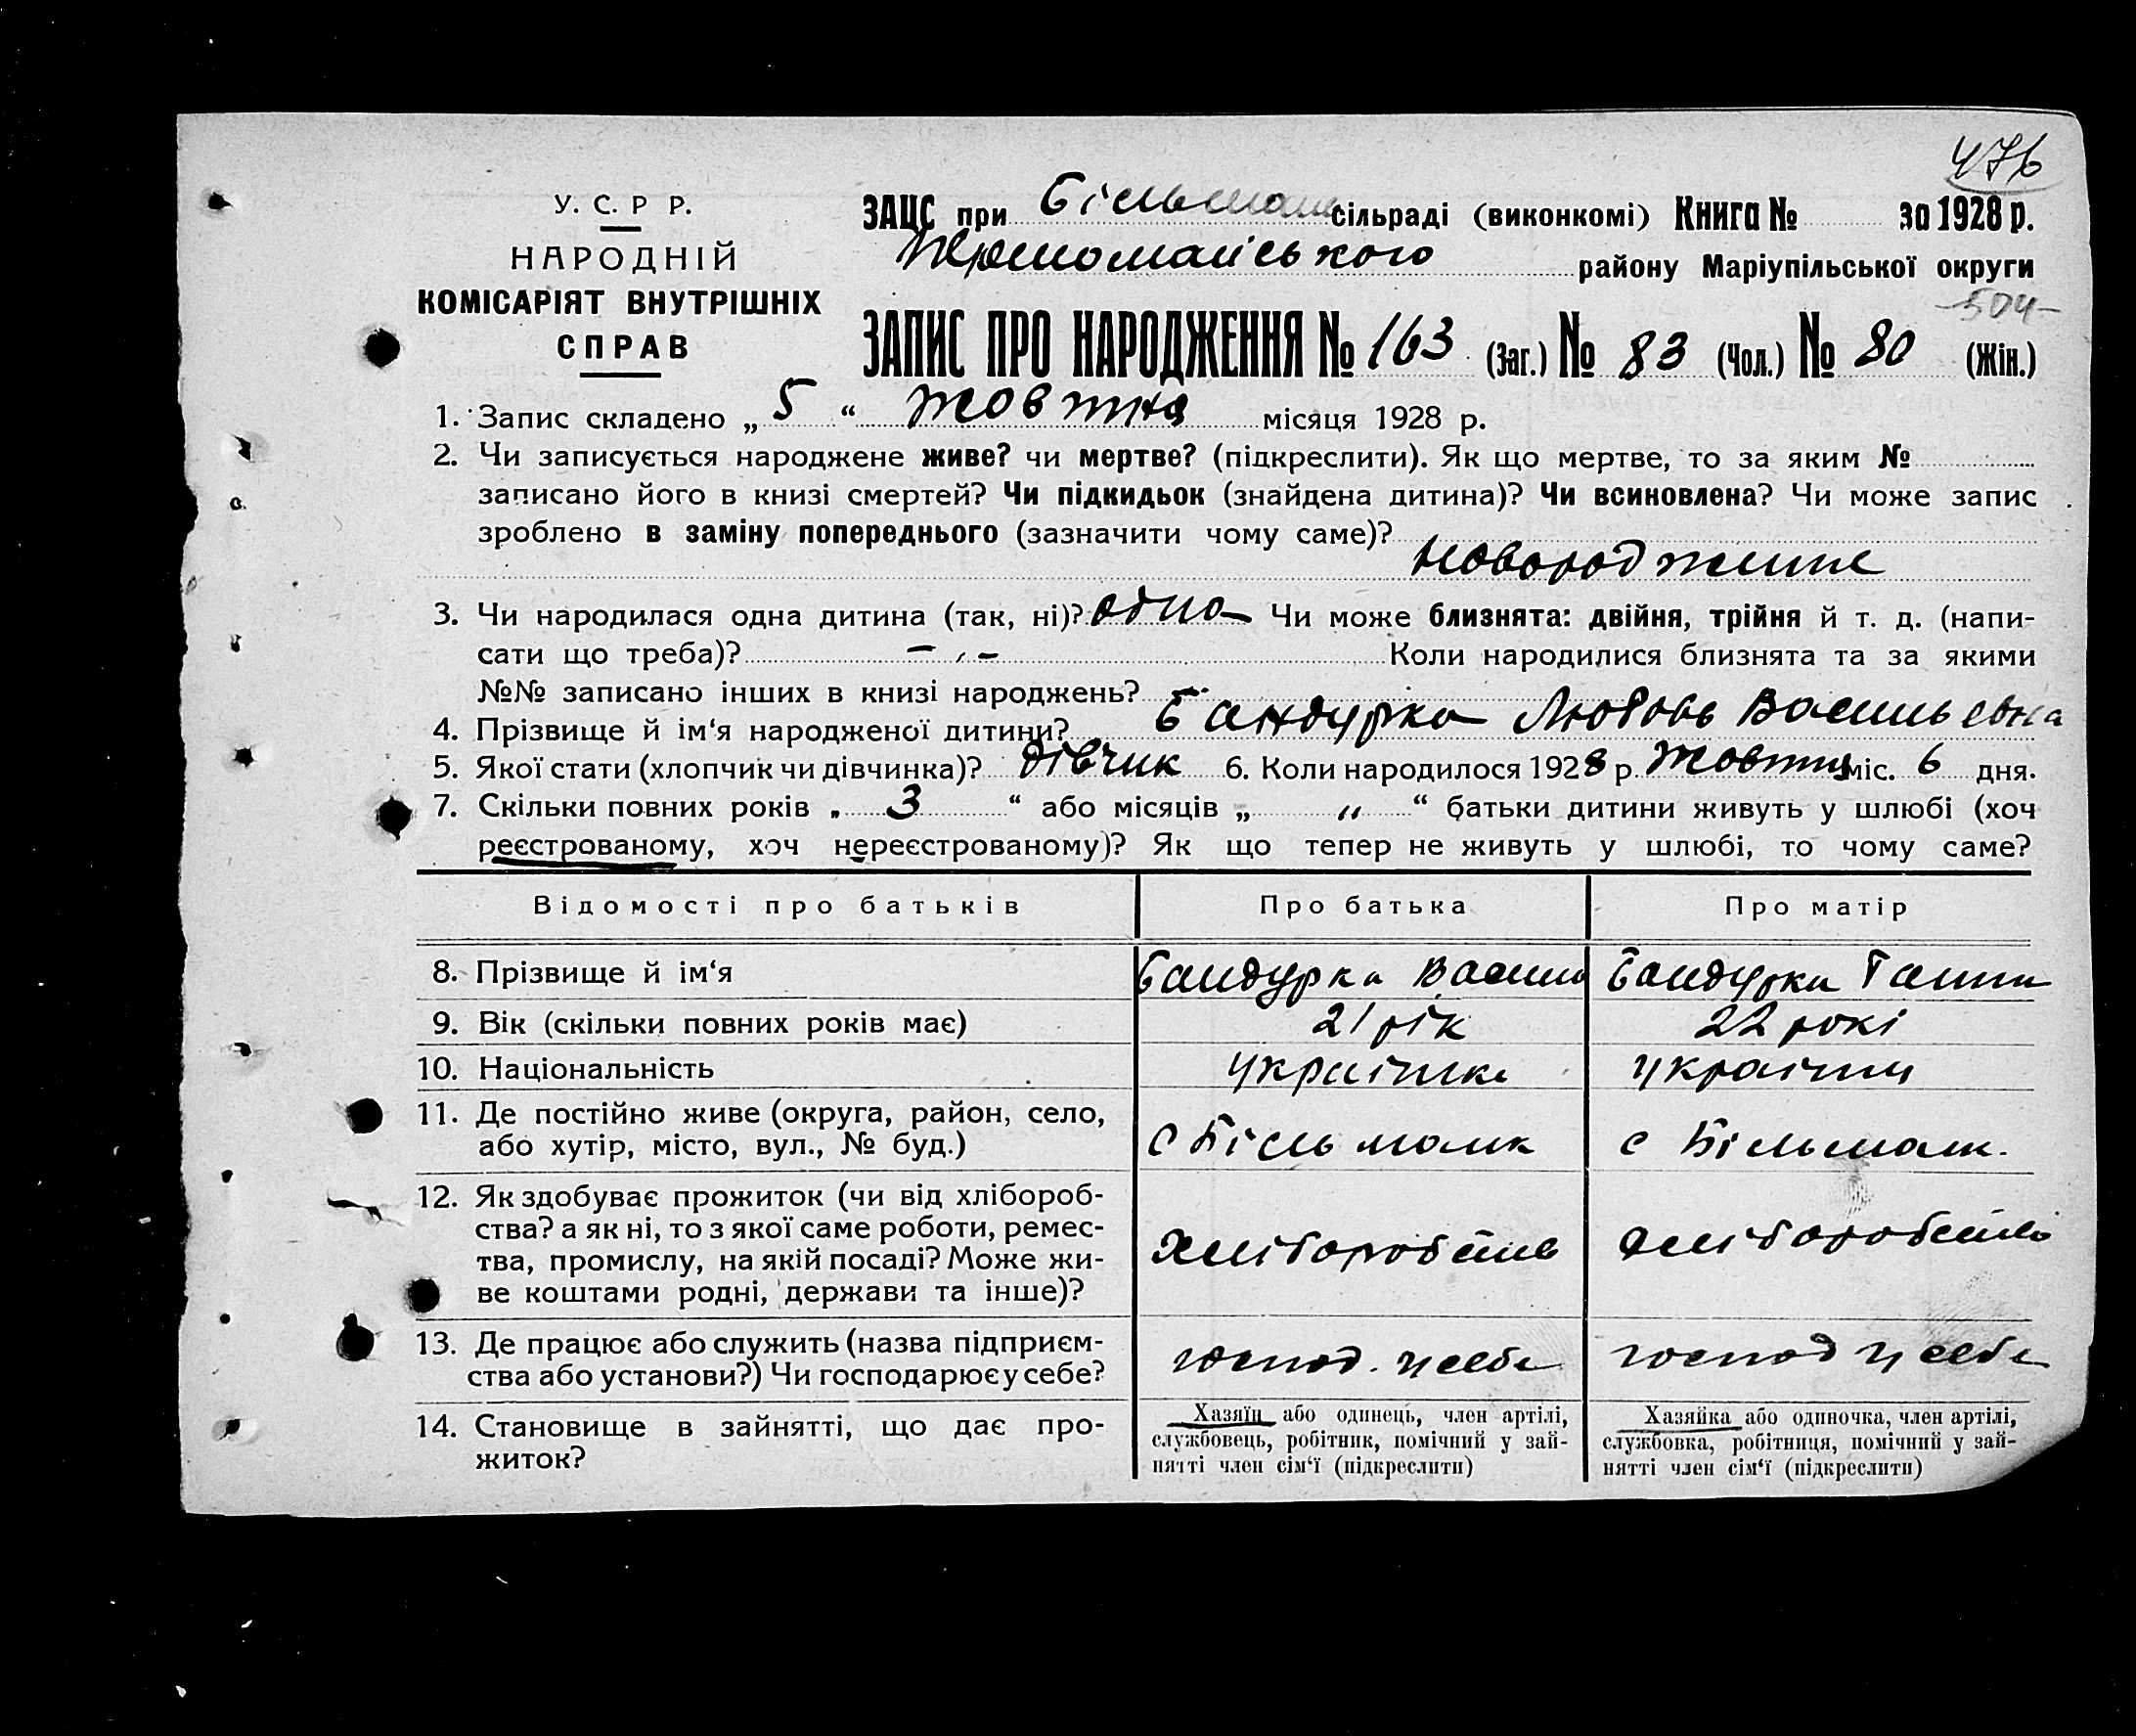 476
У. С. Р Р.
НАРОДНІЙ
КОМІСАРІЯТ ВНУТРІШНІХ
СПРАВ
ЗАЦС при Більмаць сільраді (виконкомі) Книга № за 1928 р.
Першомайського району Маріупільської округи
504
ЗАПИС ПРО НАРОДЖЕННЯ № 163 (Заг.) № 83 (Чол.) № 80 (Жін.)
1. Запис складено „ 5 “ жовтня місяця 1928 р.
2. Чи записується народжене живе? чи мертве? (підкреслити). Як що мертве, то за яким №
записано його в книзі смертей? Чи підкидьок (знайдена дитина)? Чи всиновлена? Чи може запис
зроблено в заміну попереднього (зазначити чому саме)?
новороджене
3. Чи народилася одна дитина (так, ні)? одна Чи може близнята: двійня, трійня й т. д. (напи-
сати що треба)? – „ – Коли народилися близнята та за якими
№№ записано інших в книзі народжень?
4. Прізвище й ім‘я народженої дитини? Бандурка Любовь Васильевна
5. Якої стати (хлопчик чи дівчинка)? дівчик 6. Коли народилося 1928 р. Жовтня міс. 6 дня.
7. Скільки повних років „ 3 “ або місяців „ „ “ батьки дитини живуть у шлюбі (хоч
реєстрованому, хоч нереєстрованому)? Як що тепер не живуть у шлюбі, то чому саме?
Відомості про батьків Про батька Про матір
8. Прізвище й ім‘я Бандурка Васил Бандурка Ганна
9. Вік (скільки повних років має) 21 рік 22 рокі
10. Національність
11. Де постійно живе (округа, район, село,
або хутір, місто, вул., № буд.) с Більмаик с Більмаик.
12. Як здобуває прожиток (чи від хлібороб-
ства? а як ні, то з якої саме роботи, ремес-
тва, промислу, на якій посаді? Може жи-
ве коштами родні, держави та інше)?
13. Де працює або служить (назва підприєм-
ства або установи?) Чи господарює у себе? господ. у себе господ у себе
14. Становище в зайнятті, що дає про-
житок?
Хазяїн або одинець, член артілі,
службовець, робітник, помічний у зай-
нятті член сім‘ї (підкреслити)
Хазяйка або одиночка, член артілі,
службовка, робітниця, помічний у зай-
нятті член сім‘ї (підкреслити)